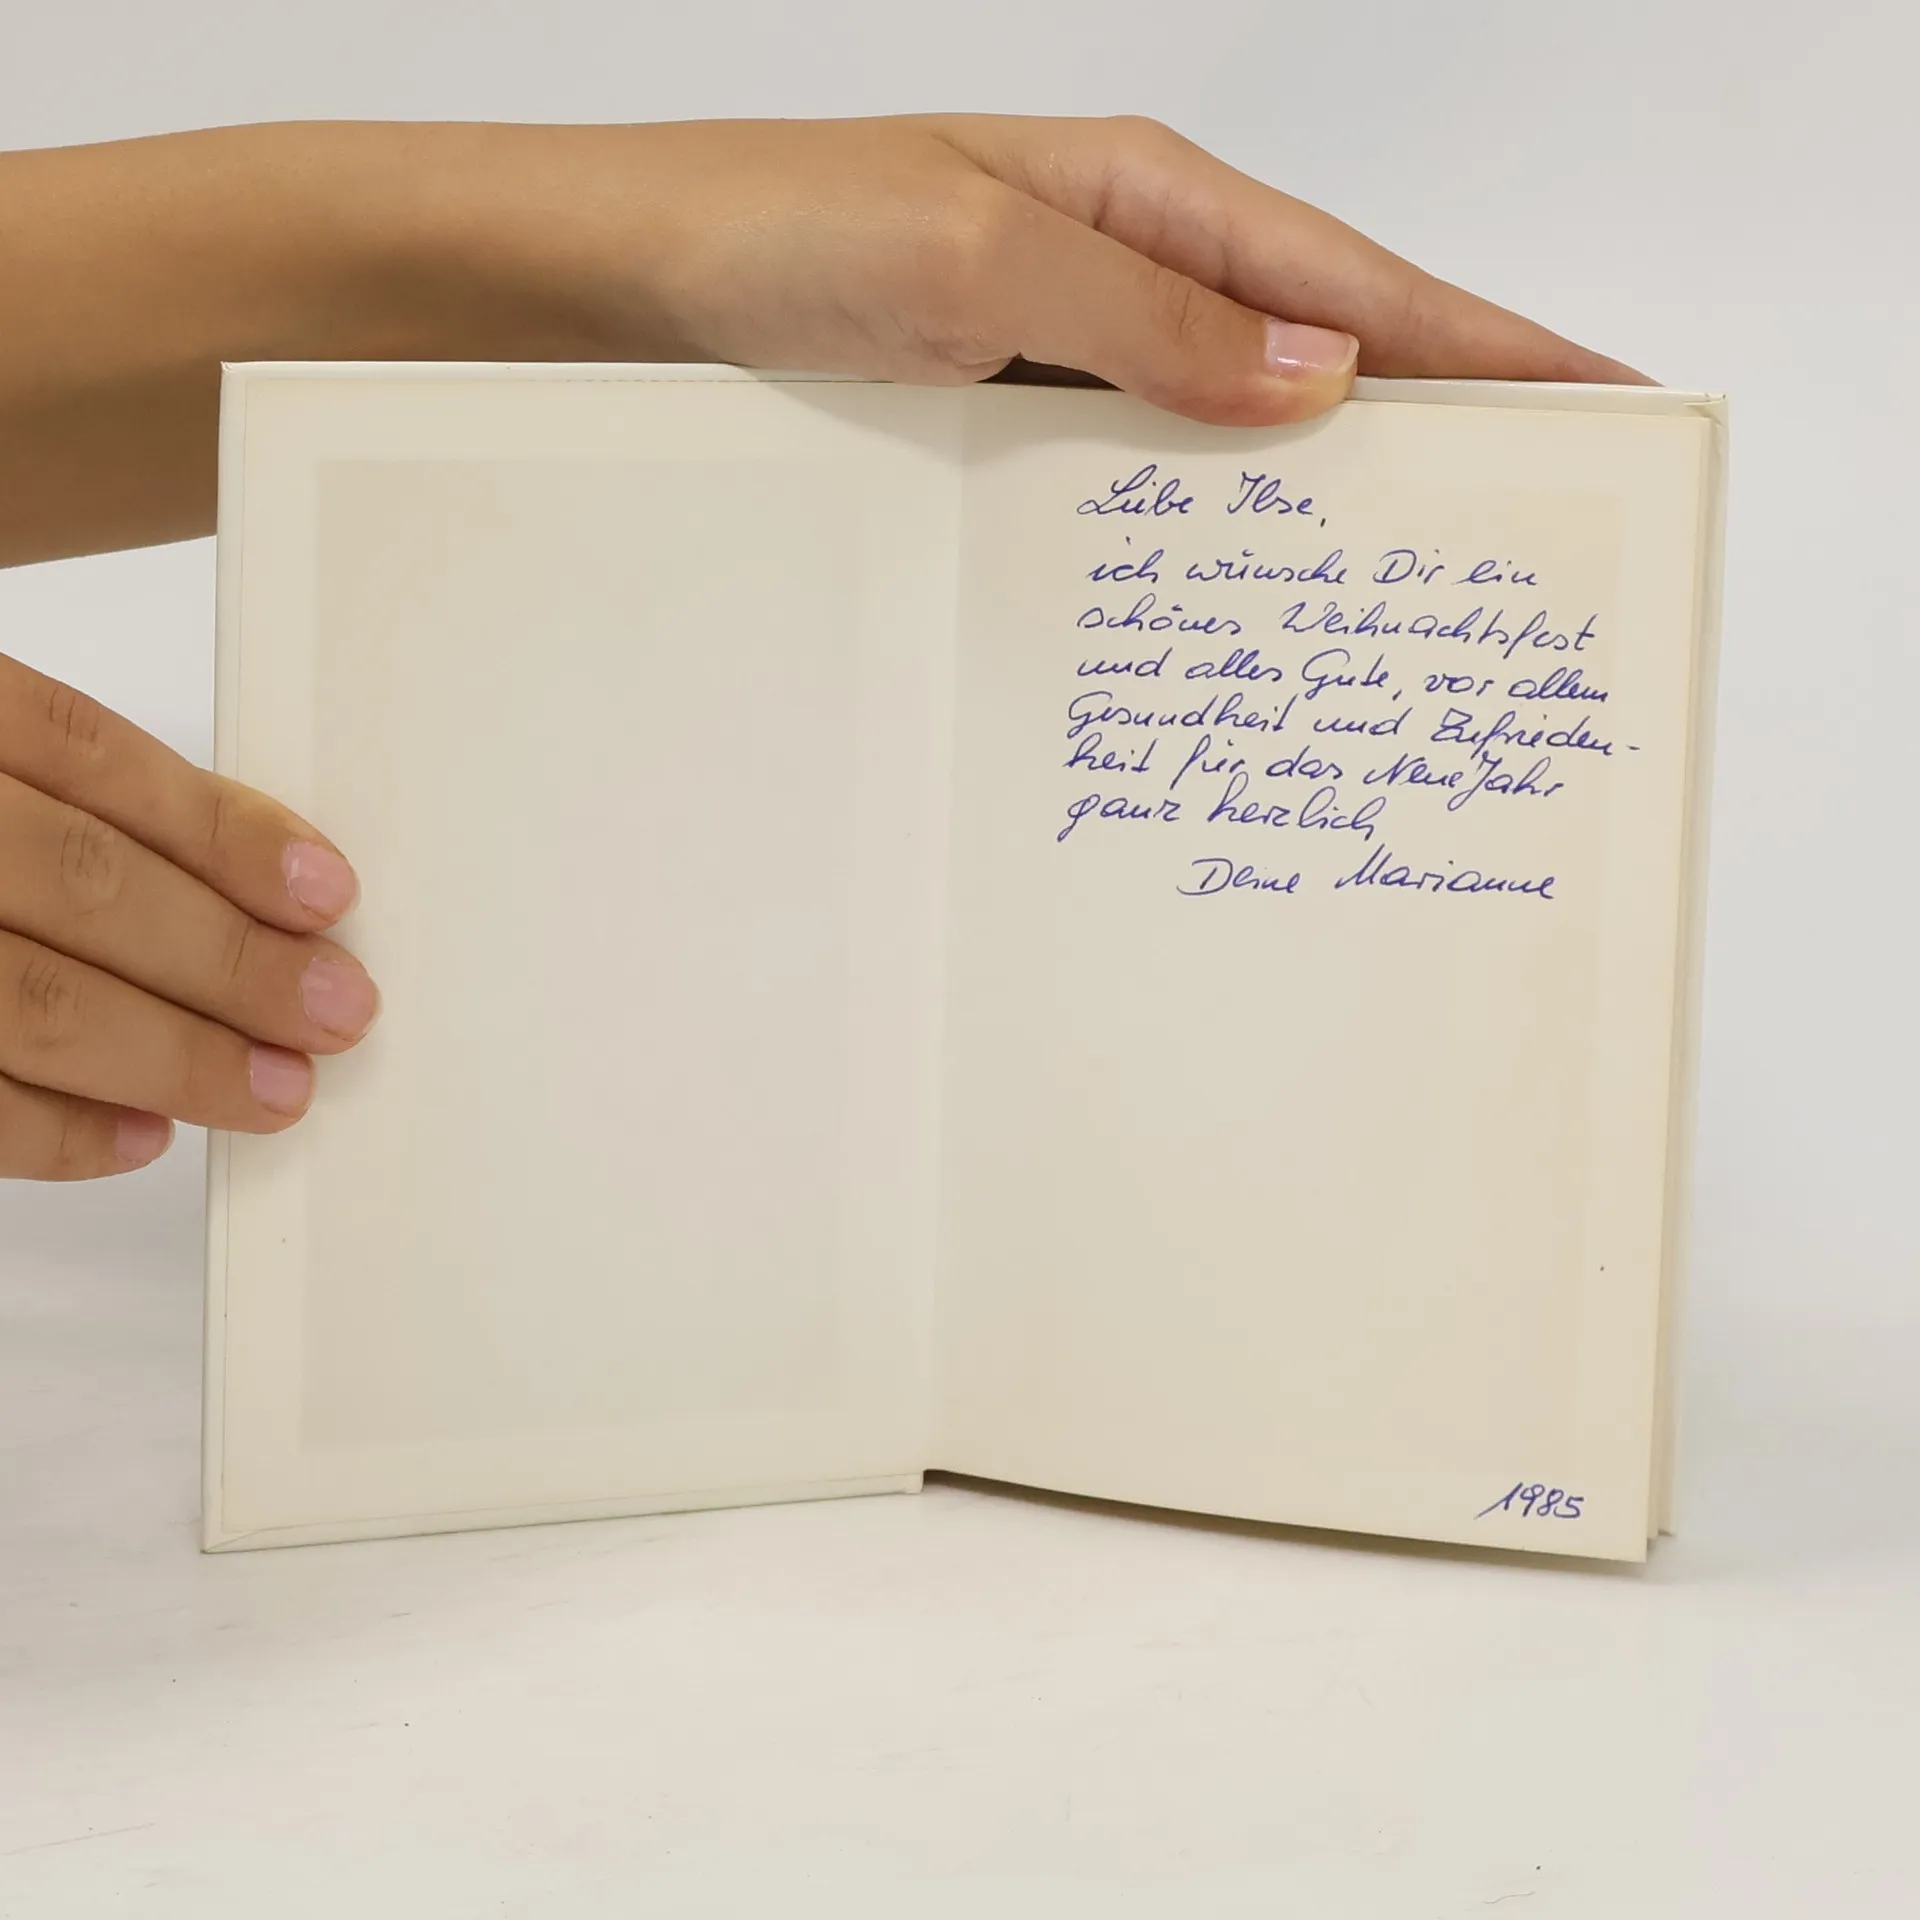 Liebe Ilse,
ich wünsche Dir ein
schönes Weihnachtsfest
und alles Gute, vor allem
Gesundheit und Zufrieden-
heit für das Neue Jahr
ganz herzlich
Deine Marianne
1985